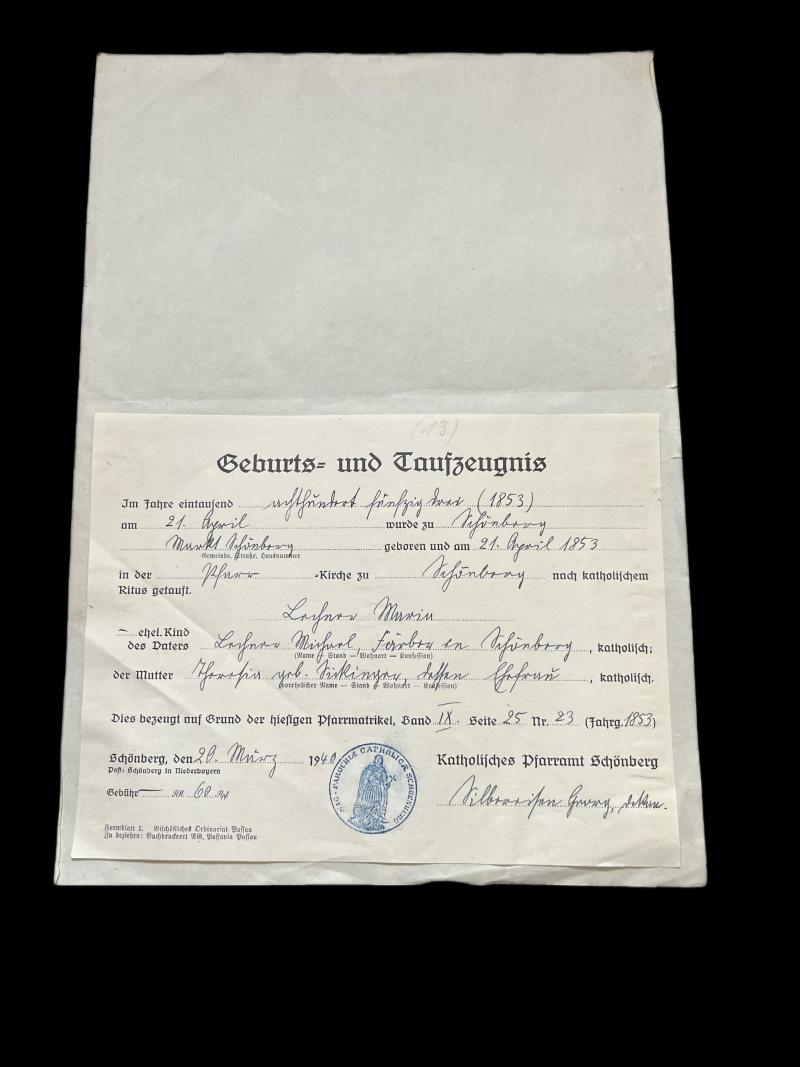 (13)
Geburts- und Taufzeugnis
Im Jahre eintausend achthundert fünfzig drei (1853)
am 21. April wurde zu Schönberg
Markt Schönberg geboren und am 21. April 1853
Gemeinde, Straße, Hausnummer
in der Pfarr -Kirche zu Schönberg nach katholischem
Ritus getauft.
Lechner Maria
— ehel. Kind
des Vaters Lechner Michael, Färber in Schönberg, katholisch;
(Name — Stand — Wohnort — Konfession)
der Mutter Theresia geb. Sickinger, dessen Ehefrau, katholisch.
(vorehelicher Name — Stand — Wohnort — Konfession)
Dies bezeugt auf Grund der hiesigen Pfarrmatrikel, Band IX. Seite 25 Nr. 23 (Jahrg. 1853)
Schönberg, den 20. März 1940
Post: Schönberg in Niederbayern
Katholisches Pfarramt Schönberg
Gebühr — RM 60 Rpf
Silbereisen Georg, Dekan.
SIG. PAROCHIÆ CATHOLICÆ SCHOENBERG
Formblatt 1. Bischöfliches Ordinariat Passau
Zu beziehen: Buchdruckerei AG. Passavia Passau